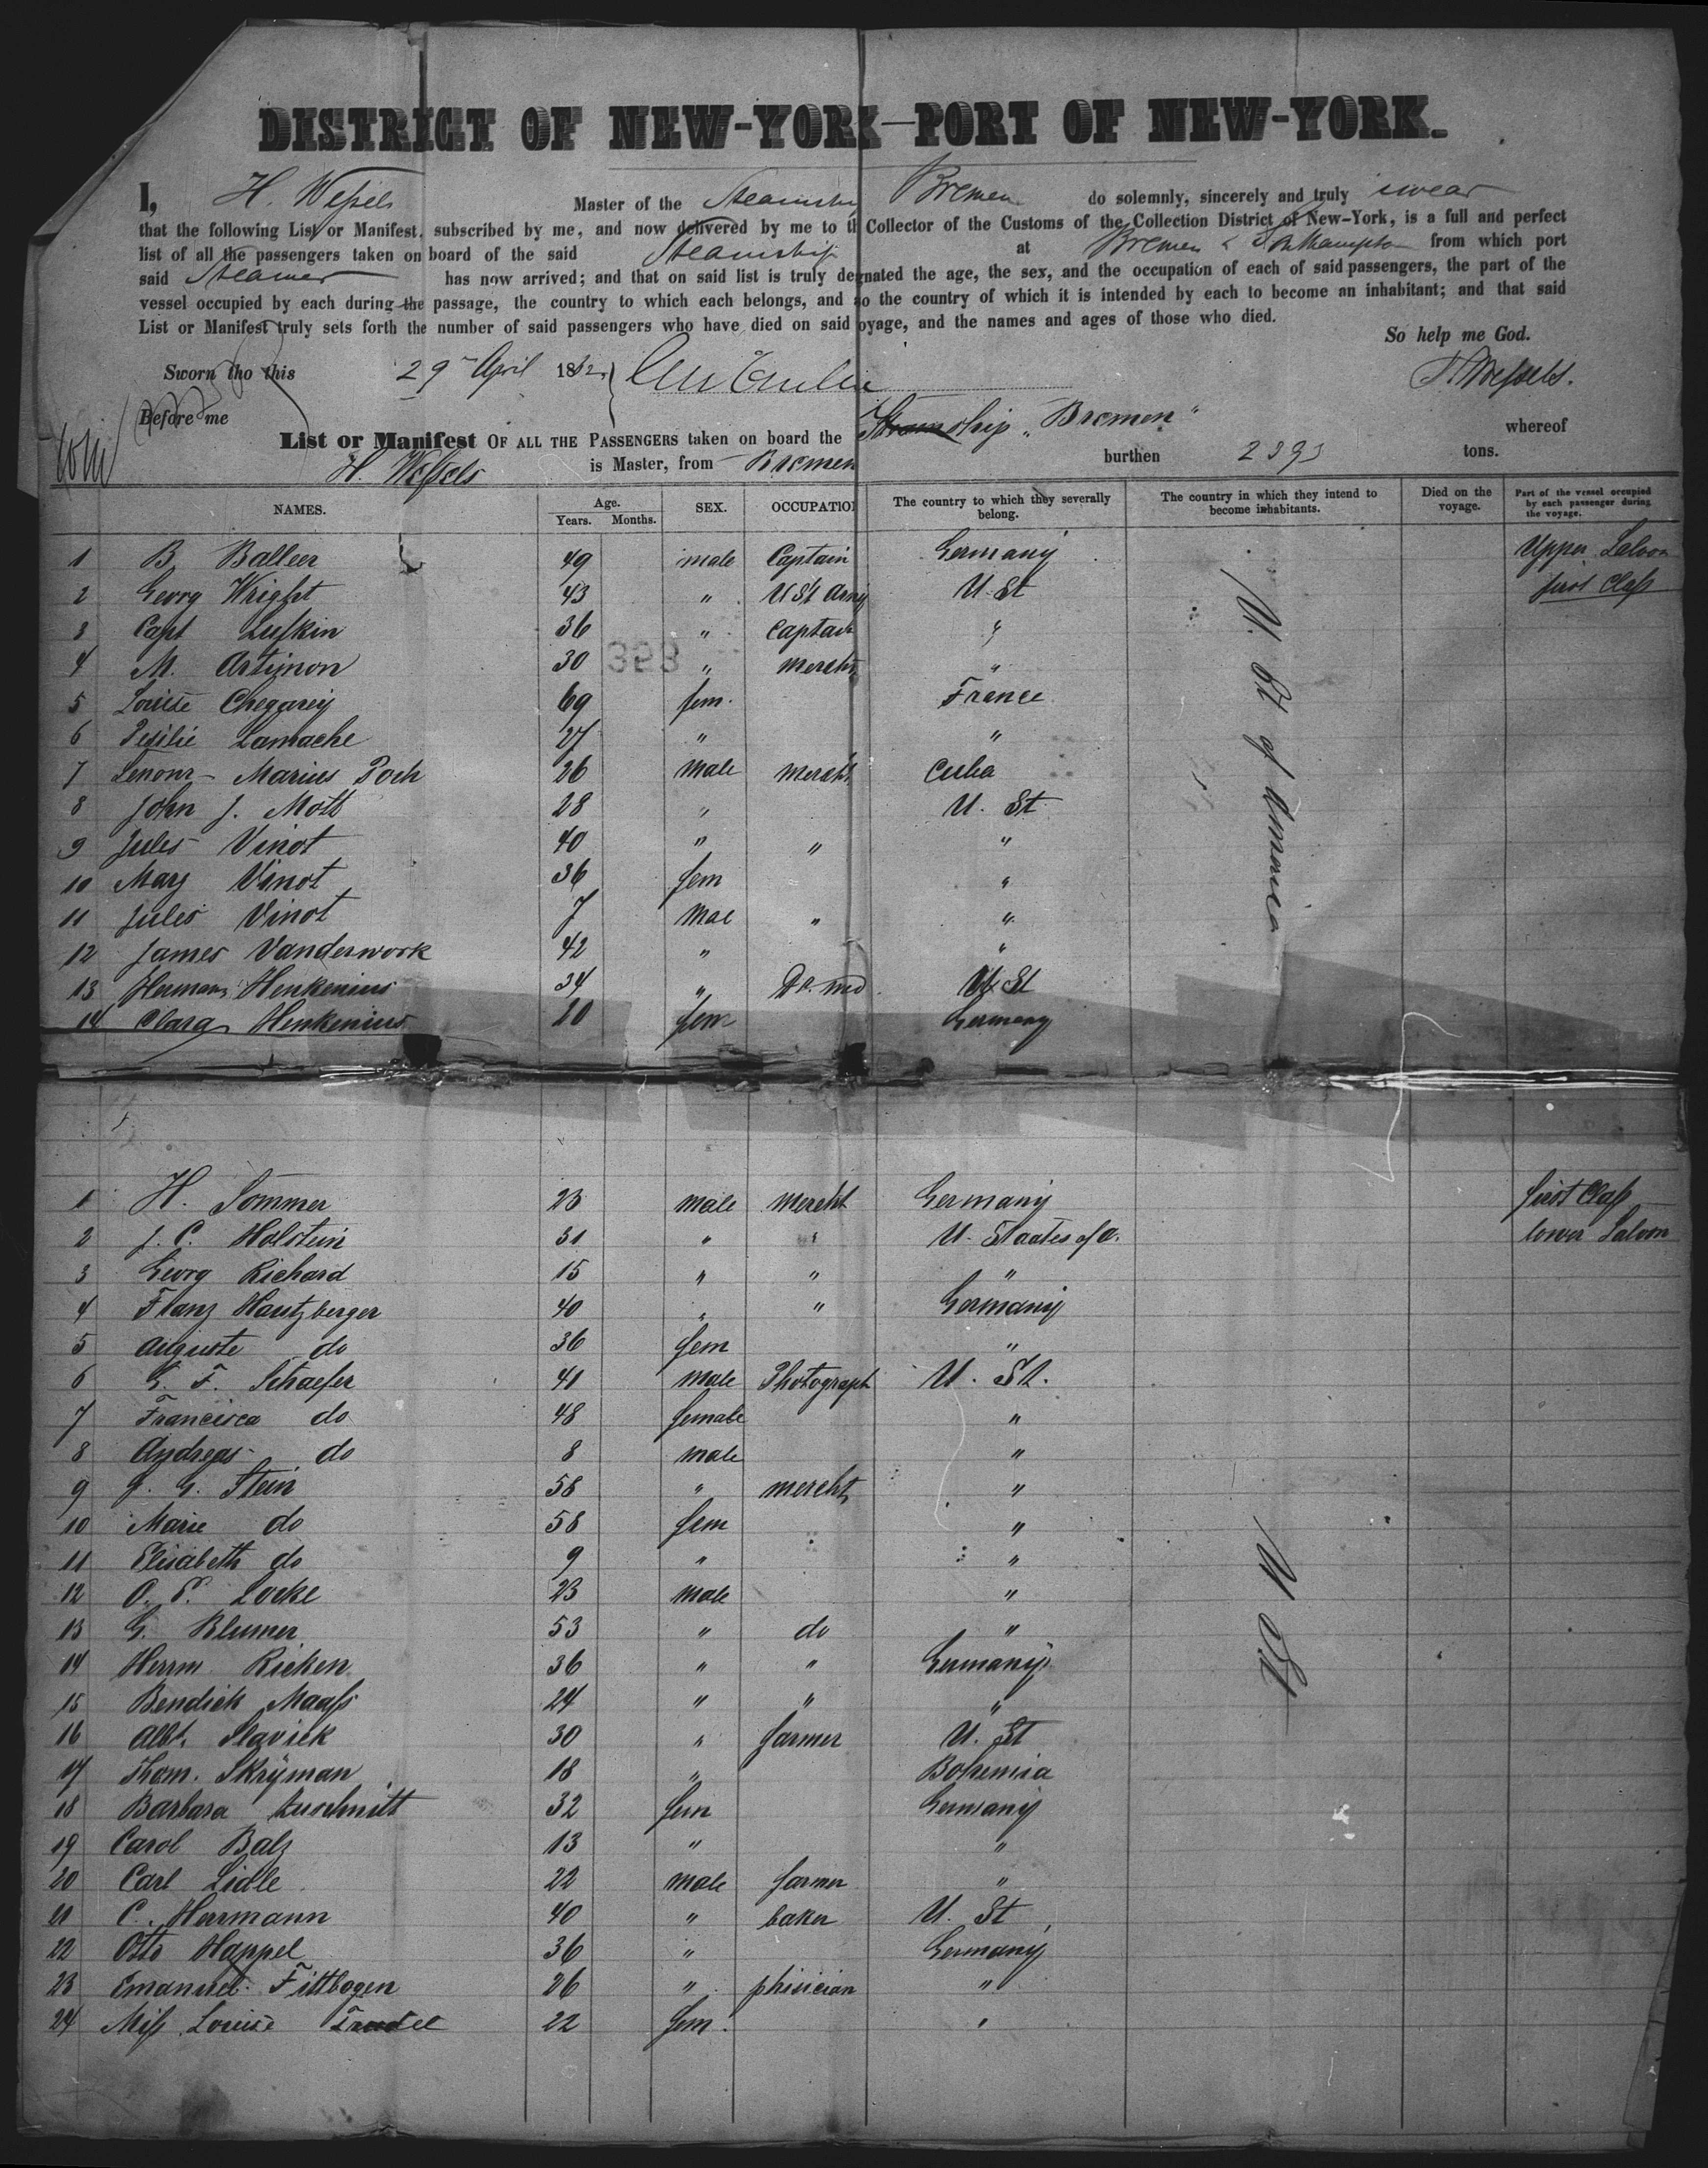 DISTRICT OF NEW-YORK—PORT OF NEW-YORK.
I, H. Wessels Master of the Steamship Bremen do solemnly, sincerely and truly swear
that the following List or Manifest, subscribed by me, and now delivered by me to th Collector of the Customs of the Collection District of New-York, is a full and perfect
list of all the passengers taken on board of the said Steamship at Bremen & Southampton from which port
said Steamer has now arrived; and that on said list is truly degnated the age, the sex, and the occupation of each of said passengers, the part of the
vessel occupied by each during the passage, the country to which each belongs, and so the country of which it is intended by each to become an inhabitant; and that said
List or Manifest truly sets forth the number of said passengers who have died on said oyage, and the names and ages of those who died.
So help me God.
Sworn tho this 29 April 1862 H Wessels.
Before me
List or Manifest OF ALL THE PASSENGERS taken on board the Steamship „Bremen" whereof
H. Wessels is Master, from Bremen burthen 2393 tons.
NAMES. Age. Years. Months. SEX. OCCUPATIO The country to which they severally belong. The country in which they intend to become inhabitants. Died on the voyage. Part of the vessel occupied by each passenger during the voyage.
1 B. Balleer 49 male Captain Germany Upper Saloon
2 Georg Wright 43 " U St Army U. St first Class
3 Capt Lufkin 36 " Captain "
4 M. Artignon 30 " mercht "
5 Louise Chegarey 69 fem. France
6 Lamache 27 " "
7 Marius Poch 26 male mercht Cuba
8 John J. Mott 28 " U. St
9 Jules Vinot 40 " " "
10 Mary Vinot 36 fem "
11 Jules Vinot 7 mal " "
12 James Vanderwork 42 " "
13 Hermann Henkenius 34 " Dr. med U. St
14 Clara Henkenius 20 fem Germany
U. St of America
1 H. Sommer 23 male mercht Germany first Class
2 J. C. Holstein 31 " " U. Staates of A. lower Saloon
3 Georg Richard 15 " " "
4 Franz Hautzberger 40 " " Germany
5 Auguste do 36 fem "
6 G. F. Schaefer 41 male Photograph U. St.
7 Francisca do 48 female "
8 Andreas do 8 male "
9 J. G. Stein 58 " mercht "
10 Marie do 58 fem "
11 Elisabeth do 9 " "
12 O. P. Locke 23 male "
13 G. Blumer 53 " do "
14 Herrm. Ricken 36 " " Germany
15 Bendick Maass 24 " " "
16 Albt. Slavick 30 " farmer U. St
17 Thom. Skryman 18 " Bohemia
18 Barbara 32 fem Germany
19 Carol Balz 13 " "
20 Carl Lidle 22 male farmer "
21 C. Herrmann 40 " baker U. St
22 Otto Happel 36 " Germany
23 Emanuel Fittbogen 26 " phisician "
24 Miss Louise 22 fem. "
U St